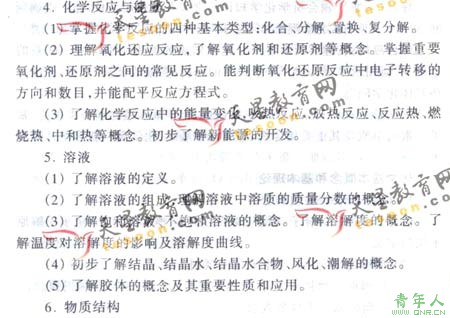 4. 化学反应与能量
(1) 掌握化学反应的四种基本类型:化合、分解、置换、复分解。
(2) 理解氧化还反应,了解氧化剂和还原剂等概念。掌握重要
氧化剂、还原剂之间的常见反应。能判断氧化还原反应中电子转移的
方向和数目,并能配平反应方程式。
(3) 了解化学反应中的能量变化,吸热反应、放热反应、反应热、燃
烧热、中和热等概念。初步了解新能源的开发。
5. 溶液
(1) 了解溶液的定义。
(2) 了解溶液的组成,溶液中溶质的质量分数的概念。
(3) 了解饱和溶液、不饱和溶液的概念。了解溶解度的概念。了
解温度对溶解度的影响及溶解度曲线。
(4) 初步了解结晶、结晶水、结晶水合物、风化、潮解的概念。
(5) 了解胶体的概念及其重要性质和应用。
6. 物质结构
天星教育网
tesoon.com
天星教育网
tesoon.com
天星教育网
tesoon.com
青年人
www.QNR.CN